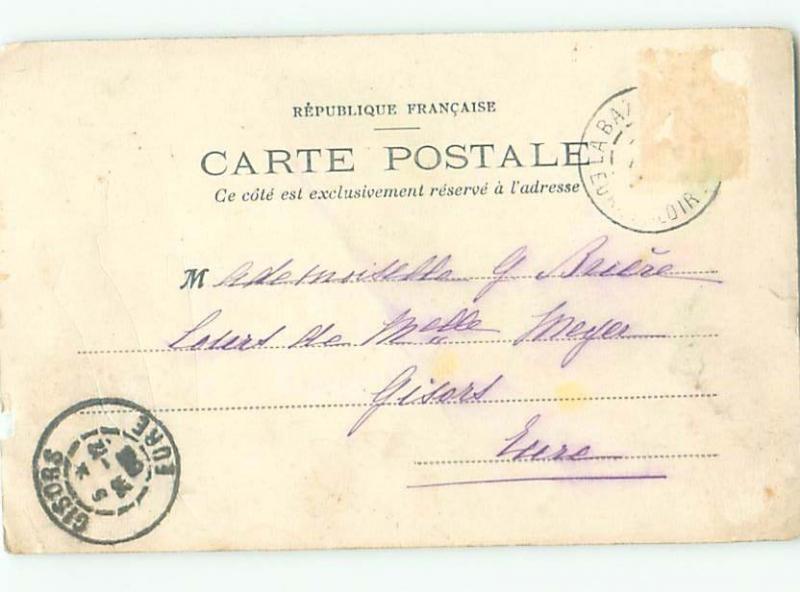 RÉPUBLIQUE FRANÇAISE
CARTE POSTALE
Ce côté est exclusivement réservé à l'adresse
LA BAZ
EURE LOIR
Mademoiselle G
Cours de Melle Meyer
Gisors
Eure
GISORS
EURE